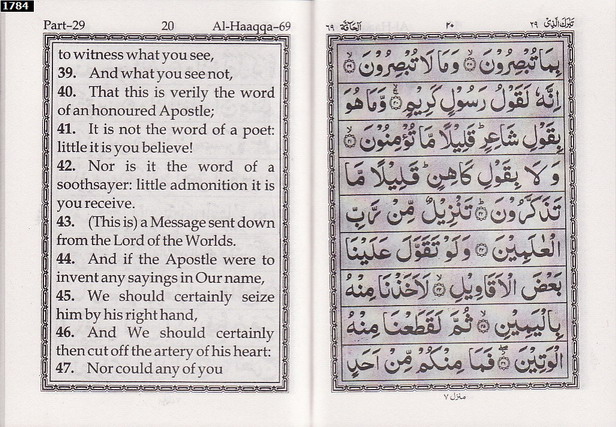 1784
Part-29 20 Al-Haaqqa-69
to witness what you see,
39. And what you see not,
40. That this is verily the word
of an honoured Apostle;
41. It is not the word of a poet:
little it is you believe!
42. Nor is it the word of a
soothsayer: little admonition it is
you receive.
43. (This is) a Message sent down
from the Lord of the Worlds.
44. And if the Apostle were to
invent any sayings in Our name,
45. We should certainly seize
him by his right hand,
46. And We should certainly
then cut off the artery of his heart:
47. Nor could any of you
تبٰرك الذی ٢٩ ٢٠ الحآقّة ٦٩
بِمَا تُبْصِرُوْنَ ۝٣٨ وَمَا لَا تُبْصِرُوْنَ ۝٣٩
اِنَّهٗ لَقَوْلُ رَسُوْلٍ كَرِيْمٍ ۝٤٠ وَّمَا هُوَ
بِقَوْلِ شَاعِرٍ ؕ قَلِيْلًا مَّا تُؤْمِنُوْنَ ۝٤١
وَلَا بِقَوْلِ كَاهِنٍ ؕ قَلِيْلًا مَّا
تَذَكَّرُوْنَ ۝٤٢ تَنْزِيْلٌ مِّنْ رَّبِّ
الْعٰلَمِيْنَ ۝٤٣ وَلَوْ تَقَوَّلَ عَلَيْنَا
بَعْضَ الْاَقَاوِيْلِ ۝٤٤ لَاَخَذْنَا مِنْهُ
بِالْيَمِيْنِ ۝٤٥ ثُمَّ لَقَطَعْنَا مِنْهُ
الْوَتِيْنَ ۝٤٦ فَمَا مِنْكُمْ مِّنْ اَحَدٍ
منزل ٧